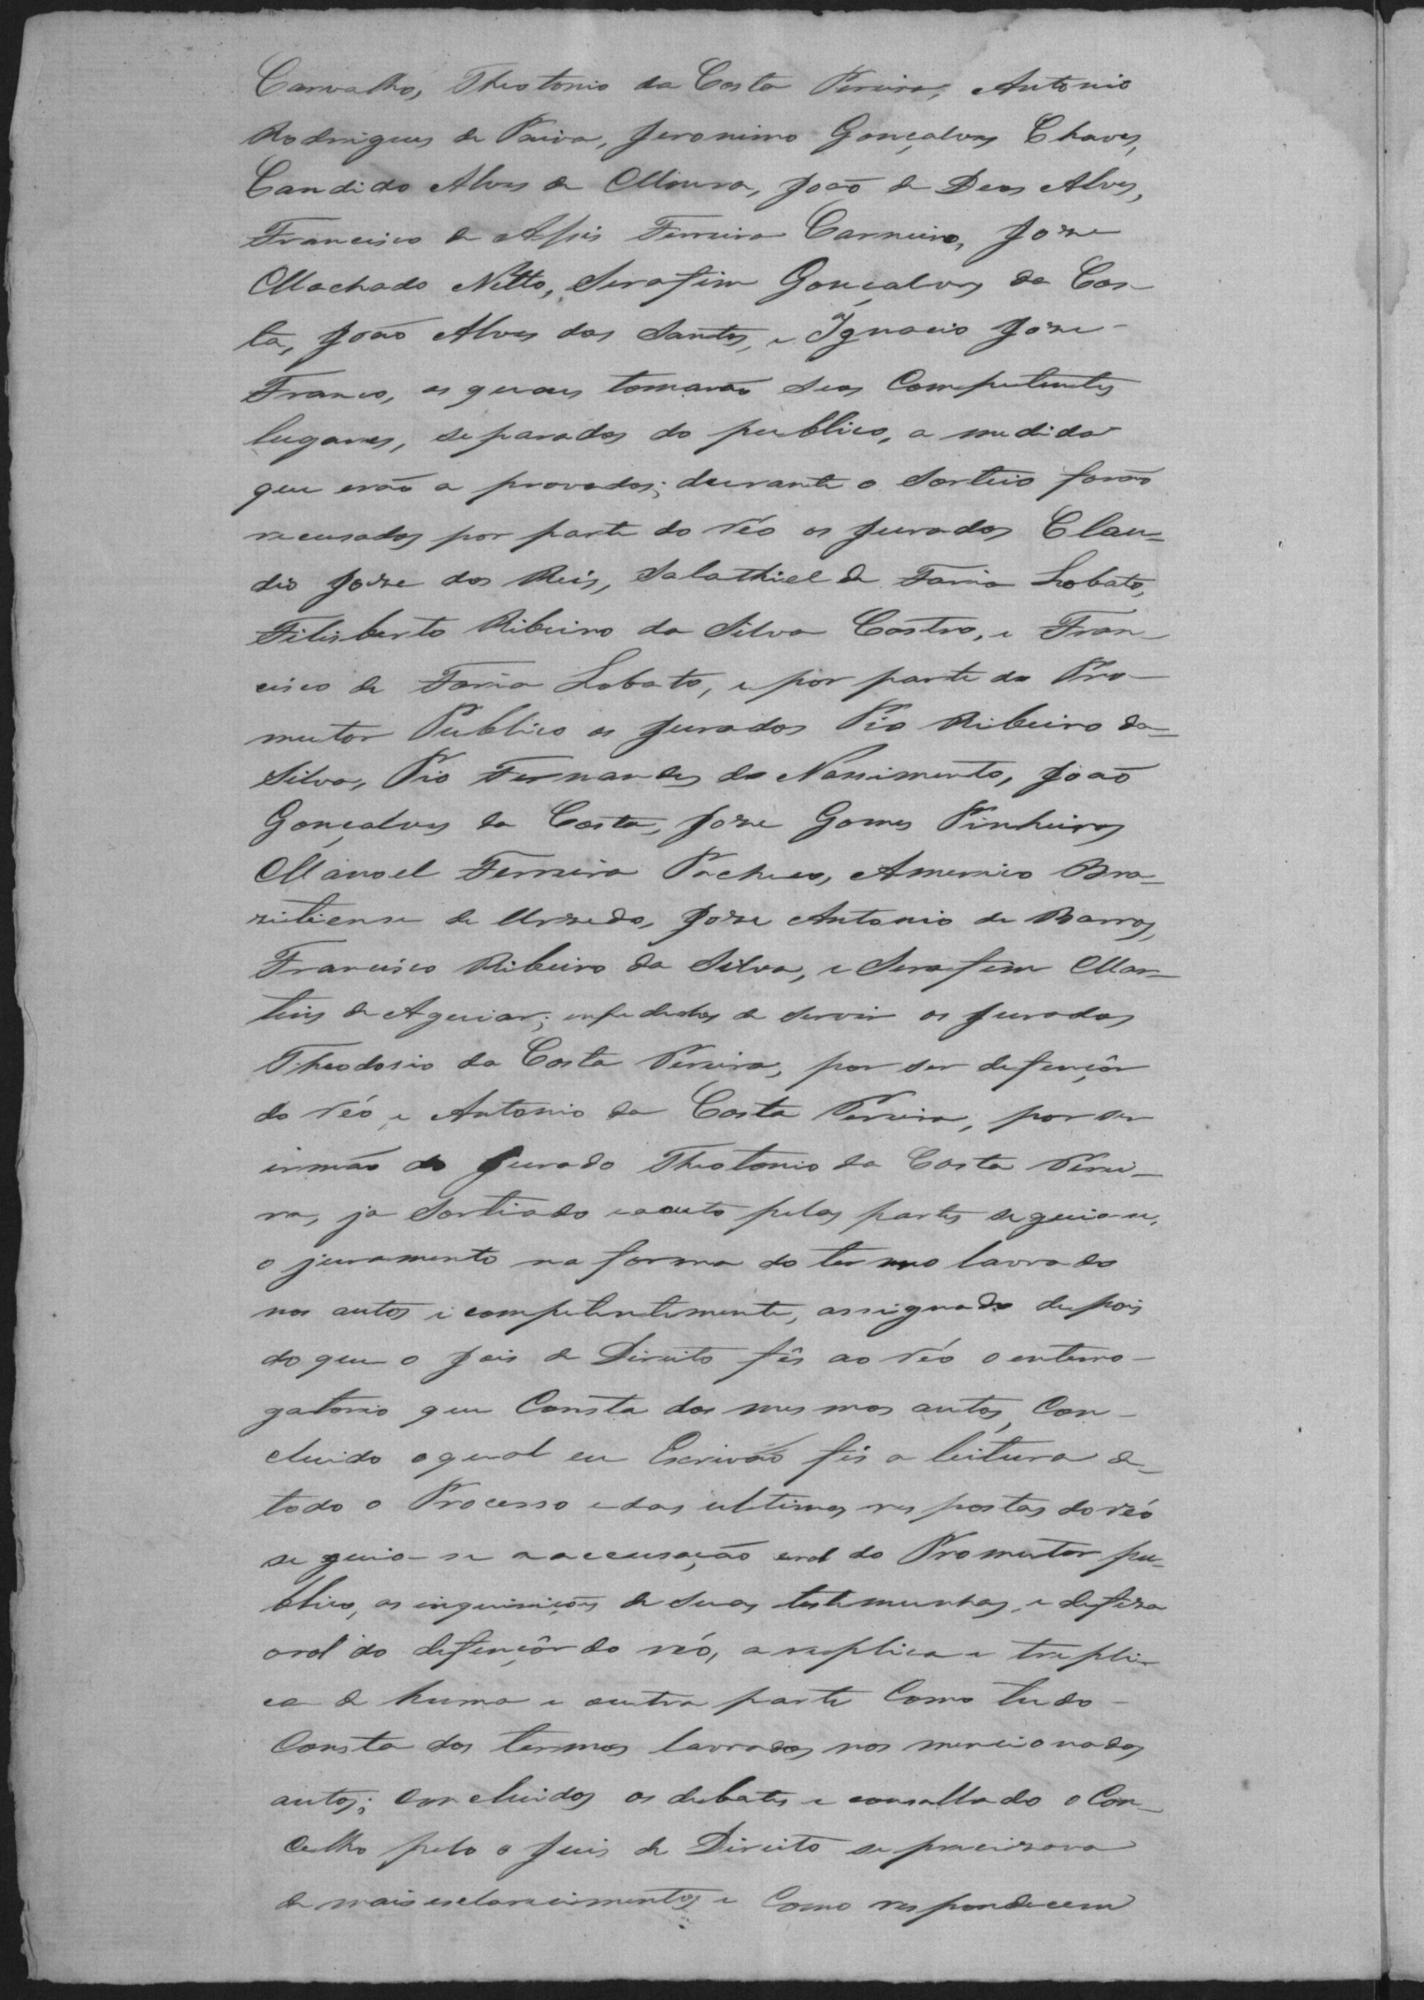 Carvalho, Theotonio da Costa Pereira, Antonio
Rodrigues de Paiva, Jeronimo Gonçalves Chaves,
Candido Alves de Moura, João de Deos Alves,
Francisco de Assis Ferreira Carneiro, Joze
Machado Netto, Serafim Gonçalves da Cos-
ta, João Alves dos Santos, e Ignacio Joze
Franco, os quaes tomarão seos Competentes
lugares, separados do publico, a medida
que erão a provados; durante o Sorteio forão
recusados por parte do réo os Jurados Clau=
dio Joze dos Reis, Salathiel de Faria Lobato,
Filisberto Ribeiro da Silva Castro, e Fran-
cisco de Faria Lobato, e por parte do Pro-
mutor Publico os Jurados Pio Ribeiro da
Silva, Pio Fernandes do Nassimento, João
Gonçalves da Costa, Joze Gomes Pinheiro,
Manoel Ferreira Pacheco, Americo Bra-
ziliense de Urzedo, Joze Antonio de Barros,
Francisco Ribeiro da Silva, e Serafim Mar-
tins de Aguiar; empedidos de servir os Jurados
Theodosio da Costa Pereira, por ser defençôr
do réo, e Antonio da Costa Pereira, por ser
irmão do Jurado Theotonio da Costa Perei-
ra, ja Sortiado e aceito pelas partes seguiu se,
o juramento na forma do termo lavrado
nos autos e competentemente, assignado depois
do que o Juis de Direito fês ao réo o enterro-
gatorio que Consta dos mesmos autos, Con-
cluido o qual eu Escrivão fis a leitura de
todo o Processo e das ultimas respostas do réo
seguio-se a accusação oral do Promutor pu-
blico, as inquirições de suas testemunhas, e defeza
oral do defençôr do réo, a replica e trepli-
ca de huma e outra parte Como tudo
Consta dos termos lavrados nos mencionados
autos; Concluidos os debates e consultado o Con-
celho pelo o Juis de Direito se precizava
de mais esclarecimentos e Como respondecem